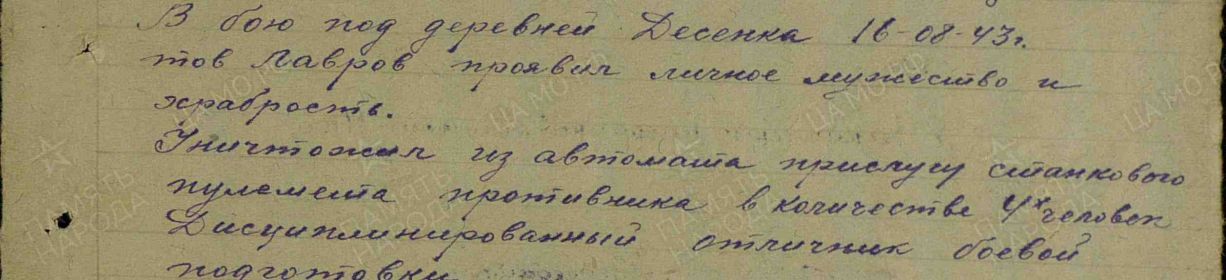 В бою под деревней Десенка 16-08-43г.
тов Лавров проявил личное мужество и
храбрость.
Уничтожил из автомата прислугу станкового
пулемета противника в количестве 4х человек
Дисциплинированный отличник боевой
подготовки